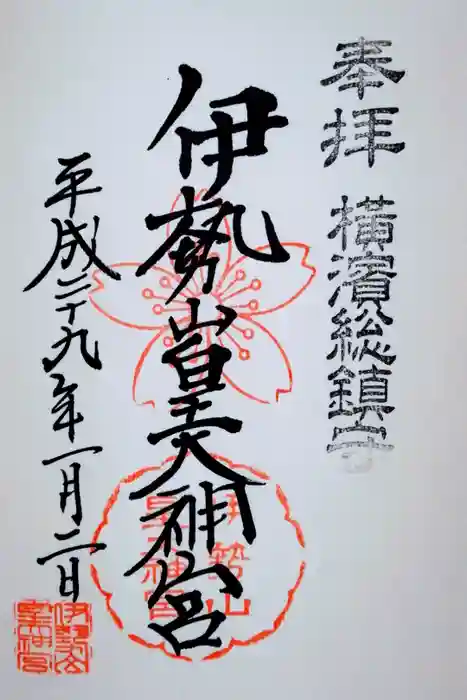 奉拝
横濱総鎮守
伊勢山皇大神宮
平成二十九年一月二日
伊勢山
皇大神宮
伊勢山
皇大神宮